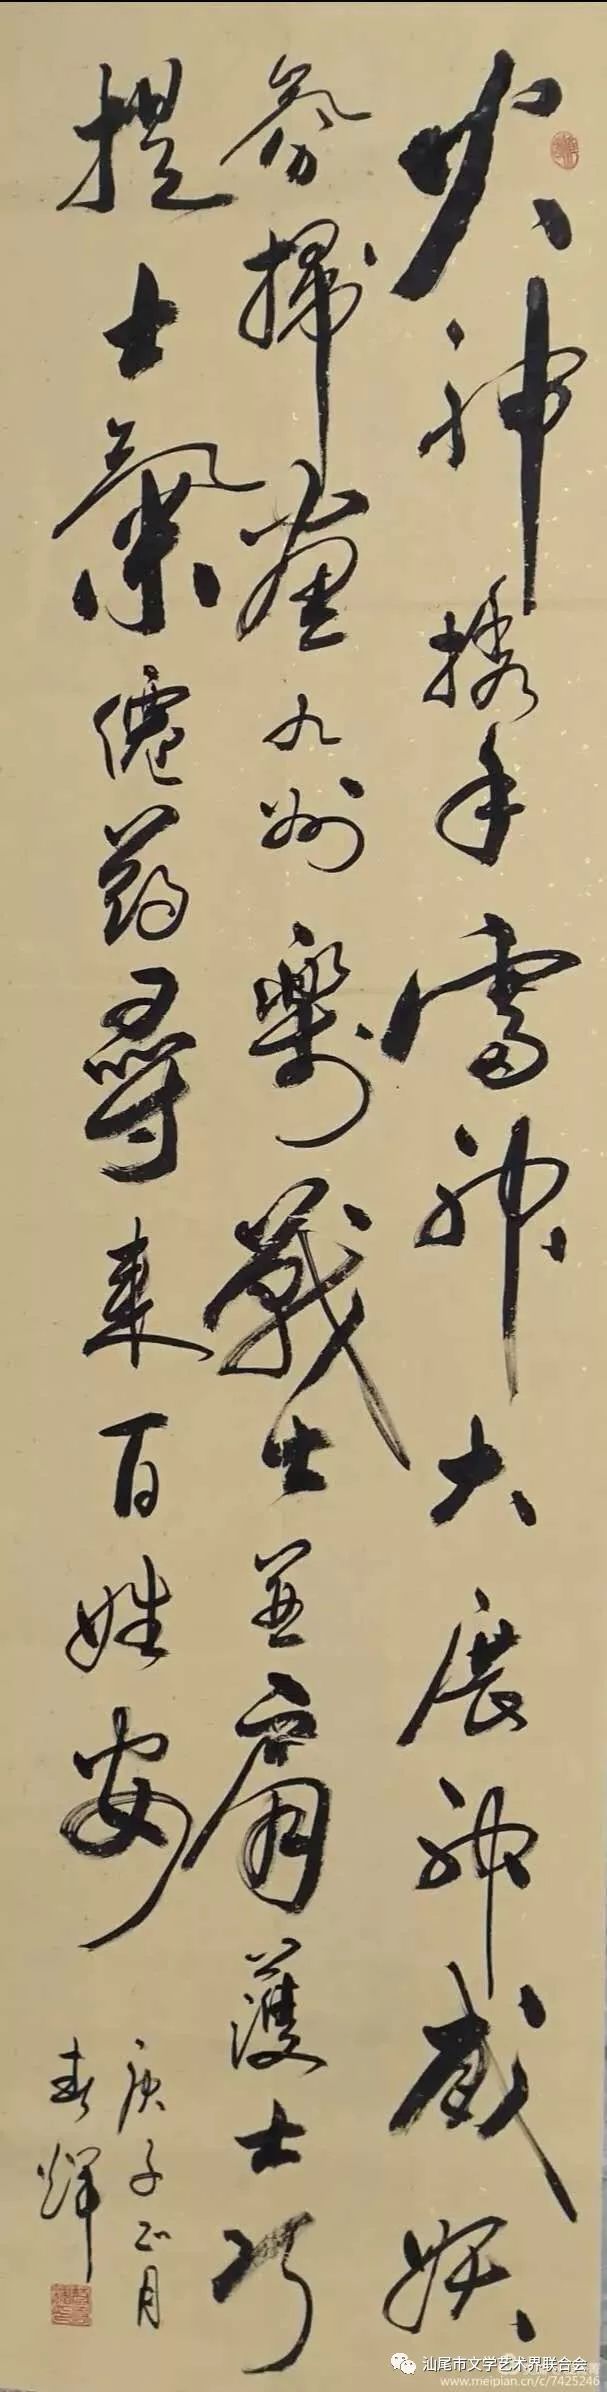 火神携手雷神大展神威妖
氛掃盡九州樂戰士並肩護士巧
提士氣僊药尋来百姓安
庚子正月
春輝
汕尾市文学艺术界联合会
www.meipian.cn/c/7425246